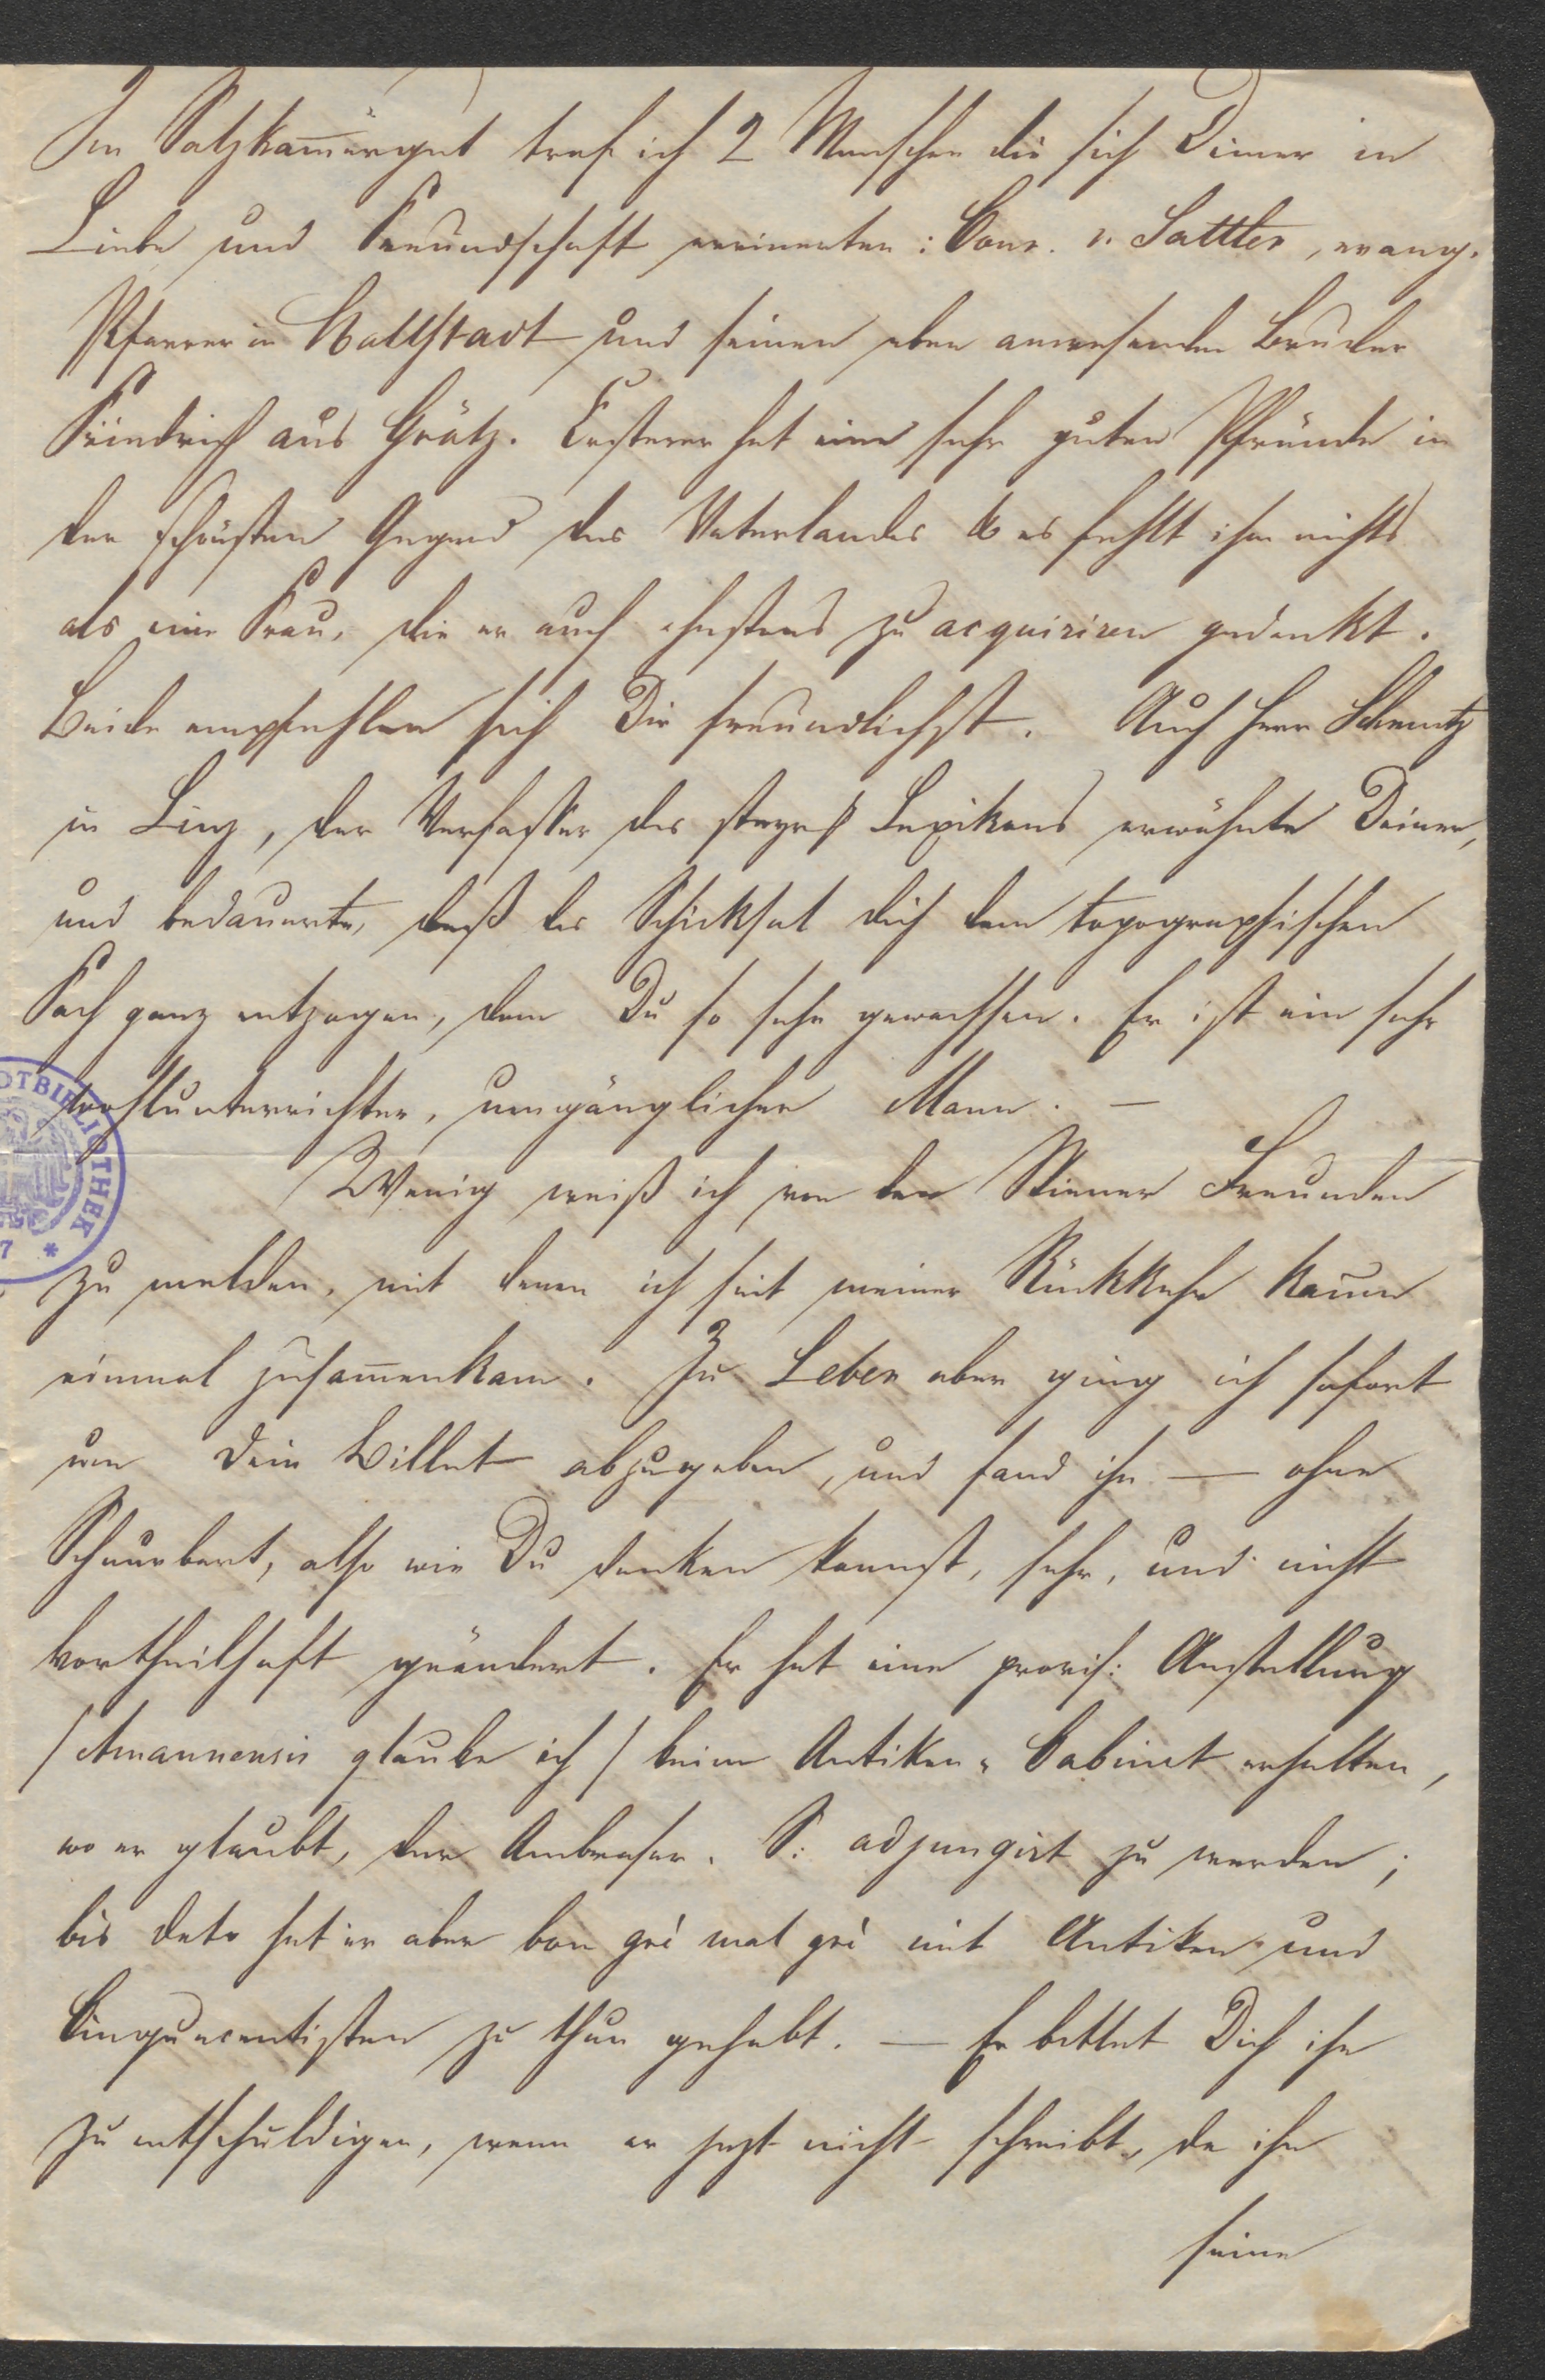 Im Salzkam̅ergut traf ich 2 Menschen die sich Deiner in
Liebe und Freundschaft erinnerten: Conr. v. Sattler, evang.
Pfarrer in Hallstadt und seinen eben anwesenden Bruder
Friedrich aus Grätz. Ersterer hat eine sehr guten Pfründe in
der schönsten Gegend des Vaterlandes & es fehlt ihm nichts
als eine Frau, die er auch ehestens zu acquiriren gedenkt.
Beide empfehlen sich Dir freundlichst. Auch Herr Schmutz
in Linz, der Verfasser des steyrsch Lexikons erwähnte Deiner,
und bedauerte, daß das Schicksal dich dem topographischen
Fach ganz entzogen, dem Du so sehr gewachsen. Er ist ein sehr
wohlunterrichter, umgänglicher Mann. —
Wenig weiß ich von den Wiener Freunden
zu melden, mit denen ich seit meiner Rückkehr kaum
einmal zusam̅enkam. Zu Leber aber ging ich sofort
um Dein Billet abzugeben, und fand ihn — ohne
Schnurbart, also wie Du denken kannst, sehr, und nicht
vortheilhaft geändert. Er hat eine provis: Anstellung
/Amanuensis glaube ich/ beim Antiken-Cabinet erhalten,
wo er glaubt, der Ambraser. S: adjungirt zu werden;
bis dato hat er aber bon gré mal gré mit Antiken und
Cinquecentisten zu thun gehabt. — Er bittet Dich ihn
zu entschuldigen, wenn er jezt nicht schreibt, da ihn
seine
DTBIBLIOTHEK
7 *